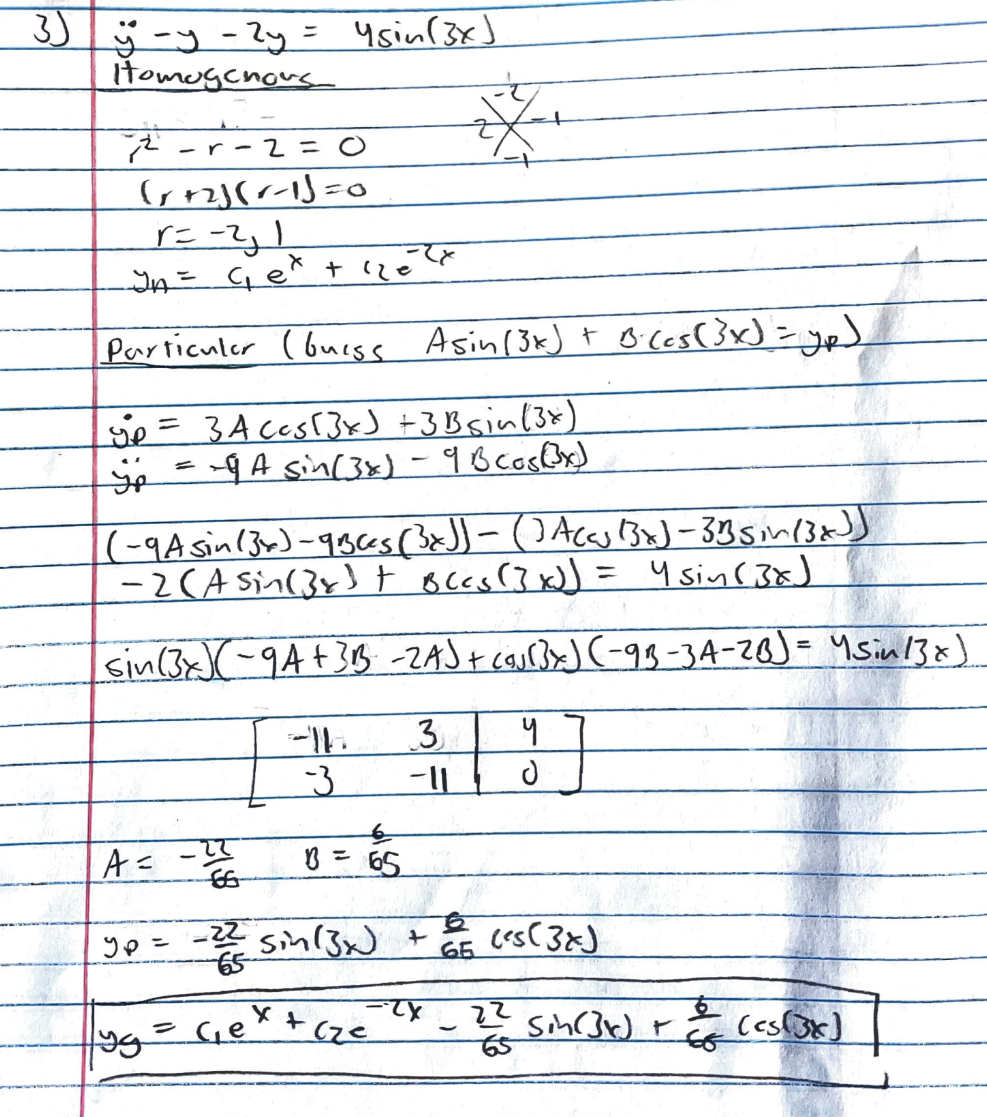 3) ÿ - y - 2y = 4sin(3x)
Homogenous
r² - r - 2 = 0
-2
2 -1
-1
(r+2)(r-1)=0
r = -2, 1
yₕ = c₁eˣ + c₂e⁻²ˣ
Particular (Guess Asin(3x) + B·cos(3x) = yₚ)
ẏₚ = 3A cos(3x) + 3B sin(3x)
ÿₚ = -9A sin(3x) - 9B cos(3x)
(-9A sin(3x) - 9Bcos(3x)) - (3Acos(3x) - 3Bsin(3x))
-2(A sin(3x) + Bcos(3x)) = 4 sin(3x)
sin(3x)(-9A + 3B - 2A) + cos(3x)(-9B - 3A - 2B) = 4sin(3x)
[ -11 3 | 4 ]
[ -3 -11 | 0 ]
A = -22/65 B = 6/65
yₚ = -22/65 sin(3x) + 6/65 cos(3x)
y_g = c₁eˣ + c₂e⁻²ˣ - 22/65 sin(3x) + 6/65 cos(3x)